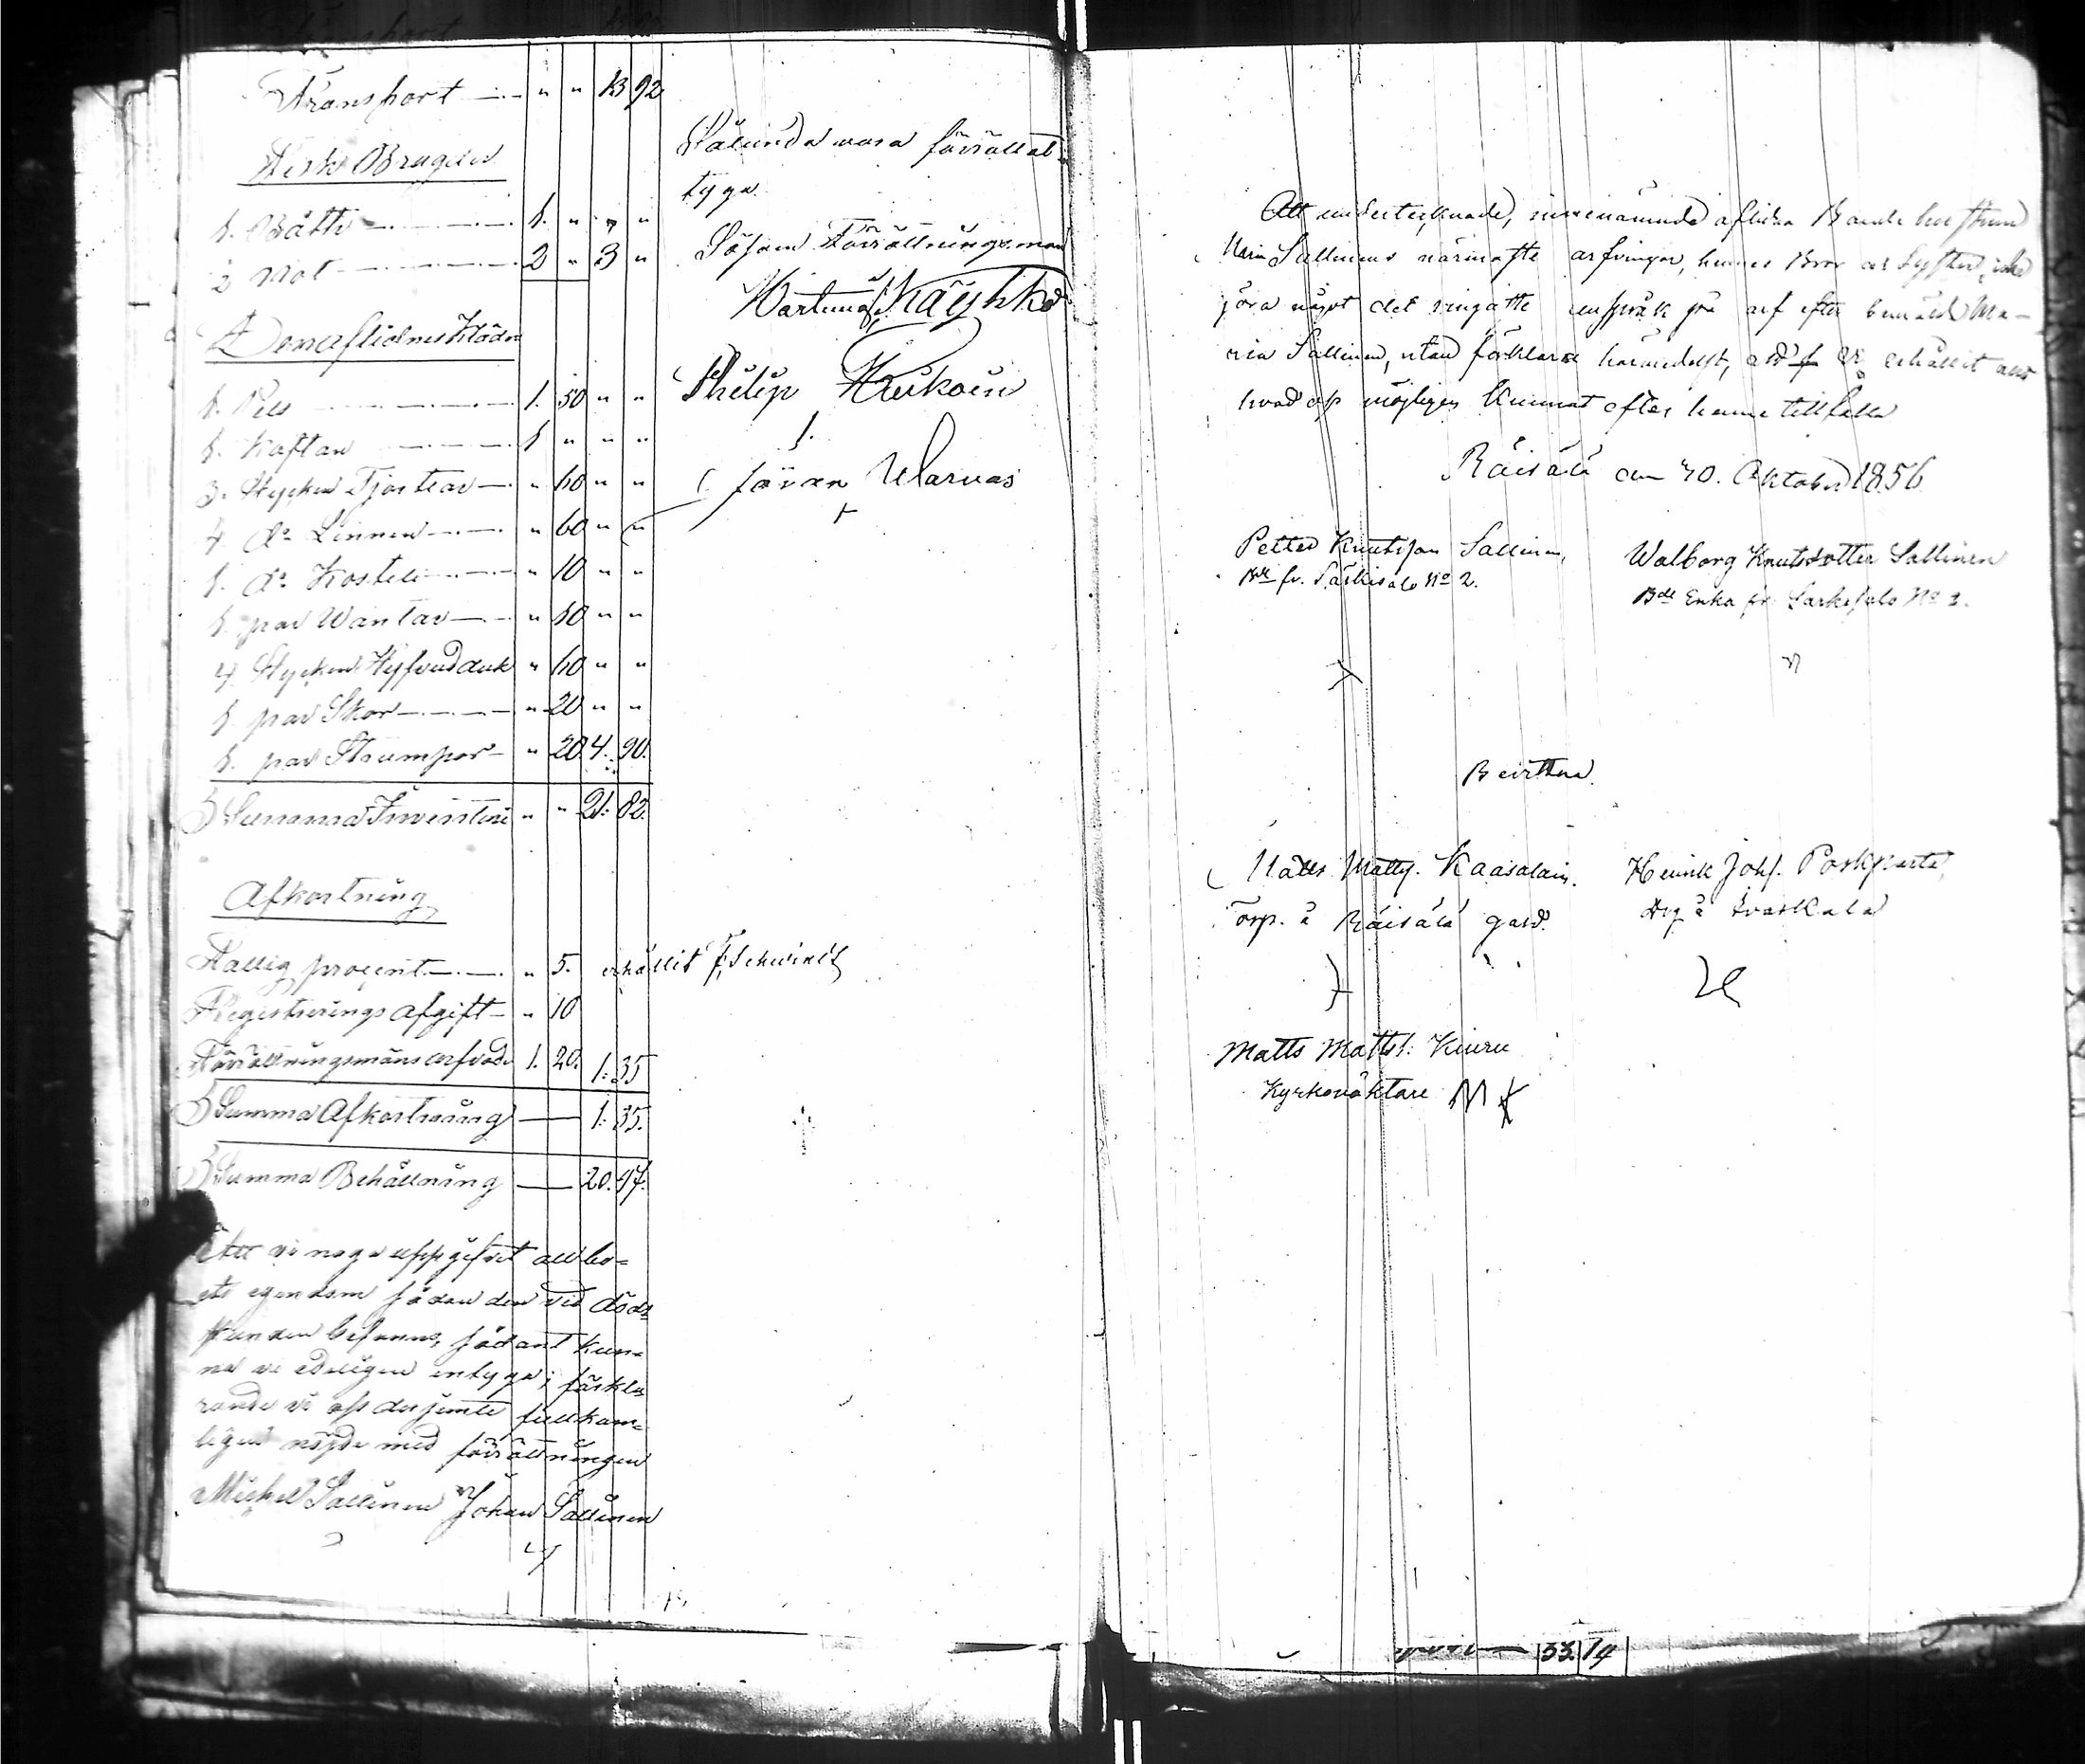 Transport " " 13 92
Fisk Bragder
1. Båtti 1. " " "
2 Not 2 " 3 "
Den aflidnes Kläder
1. Pels 1. 50 " "
1. Kaftan 1 " " "
3. Stycken Tjortlar " 60 " "
4 do Linnen " 60 " "
1. do Kosteli " 10 " "
1. par Wantar " 10 " "
4 Stycken Hufvudduk " 60 " "
1. par Skor " 20 " "
1. par Strumpor " 20. 4. 90.
Summa Inventarie " " 21. 82.
Afkortning
Fattig procent " 5. erhållit
Registrerings afgift " 10
Förrättningsmäns arfvode 1. 20. 1. 35
Summa Afkortning 1. 35.
Summa Behållning 20. 47.
Att vi noga uppgifvit all bo=
ets egendom sådan den vid döds
stunden befanns, sådant kun=
na vi edeligen intyga; förkla
rande vi oss desjemte fullkom=
ligen nöjde med förrättningen
Michel Sallinen Johan Sallinen
Sålunda vara förrättat
tyga.
Såsom Förrättningsman
Philip
Jöran Warvas
Att undertecknade, aflidna Bonde
Maria Sallinens närmaste arfvingar, hennes Bror och Syster, icke
göra något det ringaste anspråk på arf efter bemälde Ma-
ria Sallinen, utan förklarar härmedelst, att vi erhållit allt
hvad oss möjligen kunnat efter henne tillfalla
Räisälä den 30. Oktober 1856
Petter Knutsson Sallinen,
fr. Särkisalo No 2.
Walborg Knutsdotter Sallinen
Bde Enka fr. Särkisalo No 2.
Bevittna
Matts Matts. Kaasalain.
Torp. å Räisälä gård.
Henrik Johs.
Matts Matts. Kiuru
Kyrkoväktare MK
33 14